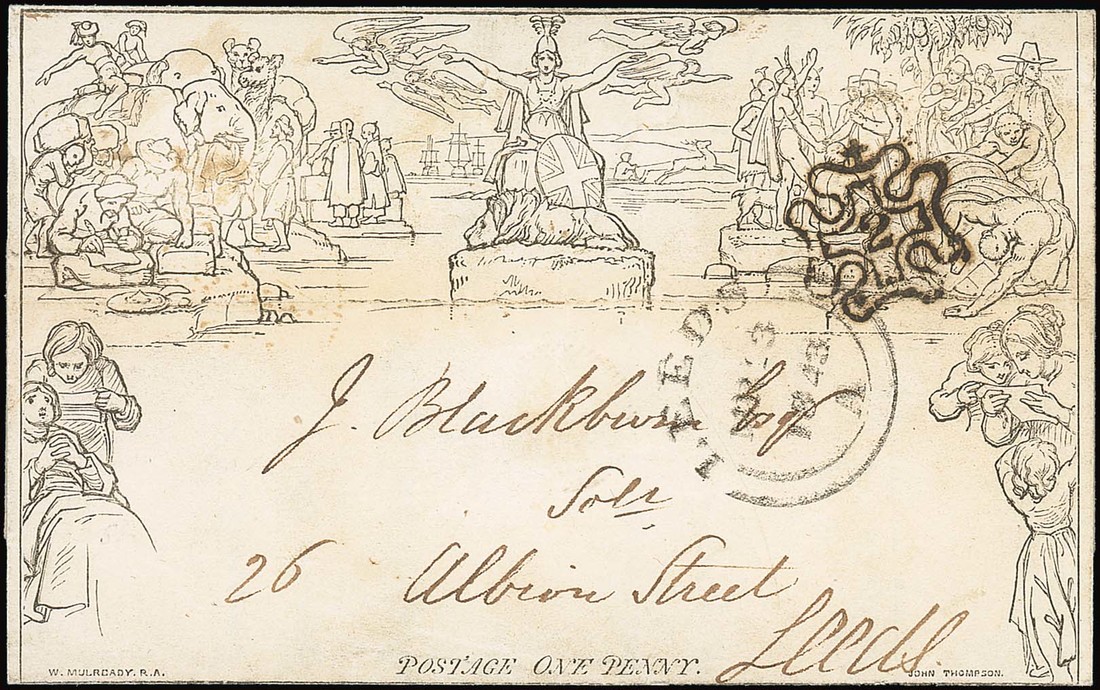 LEEDS
2
J. Blackburn Esqr
Solr
26 Albion Street
Leeds.
POSTAGE ONE PENNY.
W. MULREADY. R.A.
JOHN THOMPSON.